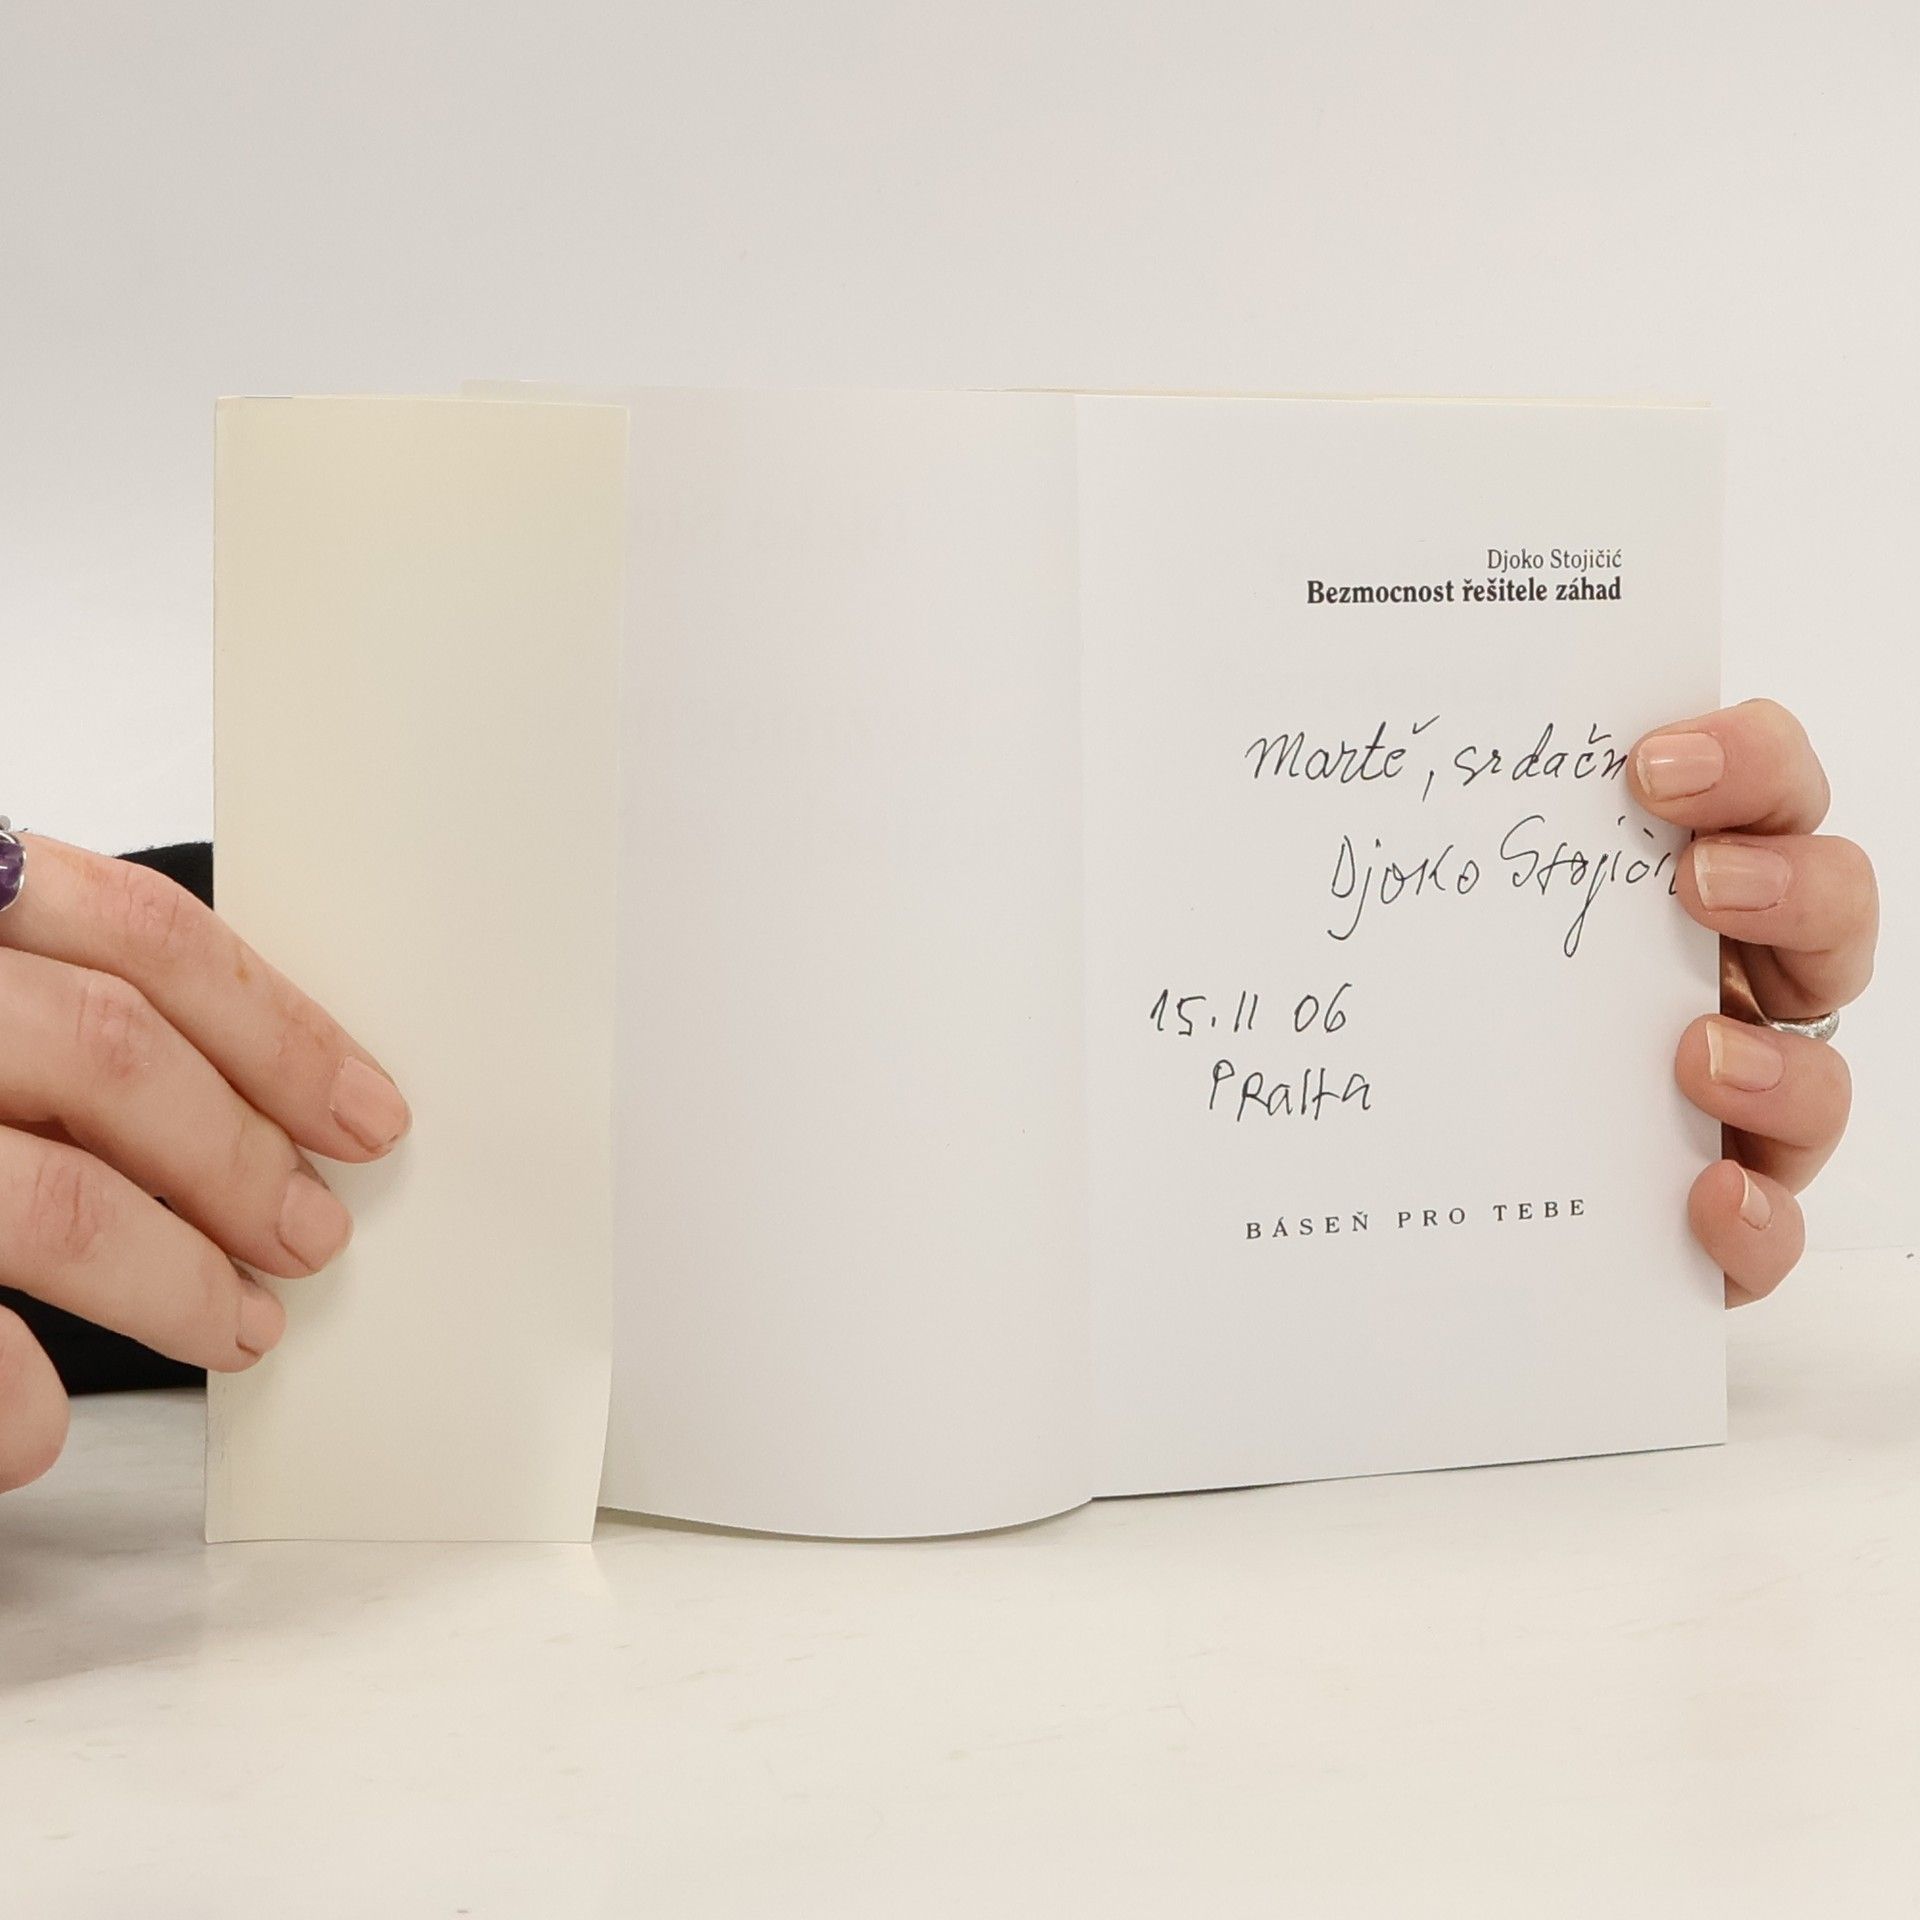 Djoko Stojičić
Bezmocnost řešitele záhad
Martě, srdačn
Djoko Stojičić
15. 11 06
PRaHa
BÁSEŇ PRO TEBE